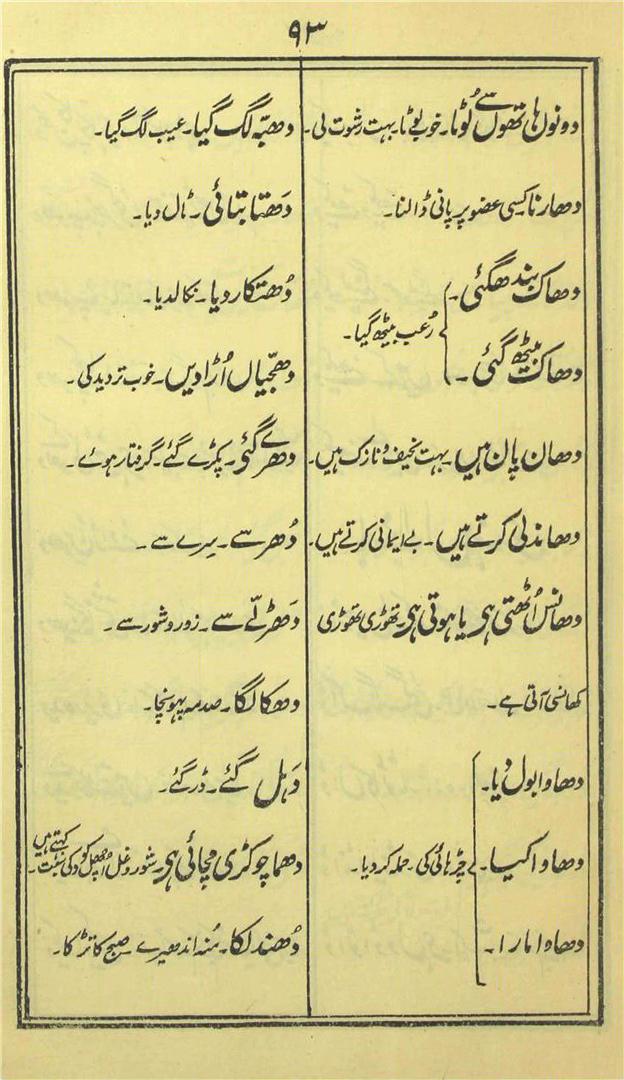 ۹۳
دونوں ہاتھوں سے لُوٹا۔ خوب لوٹا بہت رشوت لی۔
دھارنا کسی عضو پر پانی ڈالنا۔
دھاک بندھ گئی۔
دھاک بیٹھ گئی۔
رُعب بیٹھ گیا۔
دھان پان ہیں۔ بہت نحیف و نازک ہیں۔
دھاندلی کرتے ہیں۔ بے ایمانی کرتے ہیں۔
دھانس اُٹھتی ہی یا ہوتی ہی۔ تھوڑی تھوڑی
کھانسی آتی ہے۔
دھاوا بول دیا۔
دھاوا کیا۔
دھاوا مارا۔
چڑہائی کی۔ حملہ کر دیا۔
دھبّہ لگ گیا۔ عیب لگ گیا۔
دَھتا بتائی۔ ٹال دیا۔
دُھتکار دیا۔ نکالدیا۔
دھجّیاں اُڑا دیں۔ خوب تردید کی۔
دھرے گئی۔ پکڑے گئے۔ گرفتار ہوئے۔
دُھر سے۔ سِرے سے۔
دَھڑلّے سے۔ زور و شور سے۔
دھکا لگا۔ صدمہ پہونچا۔
دَہل گئے۔ ڈر گئے۔
دھما چوکڑی مچائی ہی۔ شور و غل اُچھل کود کی نسبت کہتے ہیں۔
دُھندلکا۔ مُنہ اندھیرے۔ صبح کا تڑکا۔